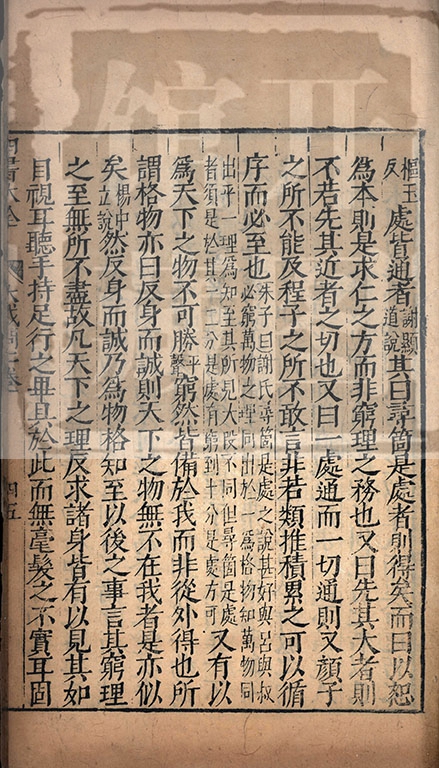 樞玉
反
處皆通者
謝顯
道說
其曰尋箇是處者則得矣而曰以恕
爲本則是求仁之方而非窮理之務也又曰先其大者則
不若先其近者之切也又曰一處通而一切通則又顔子
之所不能及程子之所不敢言非若類推積累之可以循
序而必至也
朱子曰謝氏尋箇是處之說甚好與呂與叔
必窮萬物之理同出於一爲格物知萬物同
出乎一理爲知至其所見大段不同但尋箇是處
者須是於其一二分是處直窮到十分是處方可
又有以
爲天下之物不可勝
平
聲
窮然皆備於我而非從外得也所
謂格物亦曰反身而誠則天下之物無不在我者是亦似
矣
楊中
立說
然反身而誠乃爲物格知至以後之事言其窮理
之至無所不盡故凡天下之理反求諸身皆有以見其如
目視耳聽手持足行之畢具於此而無毫髮之不實耳固
四書大全
大或問一卷
四五